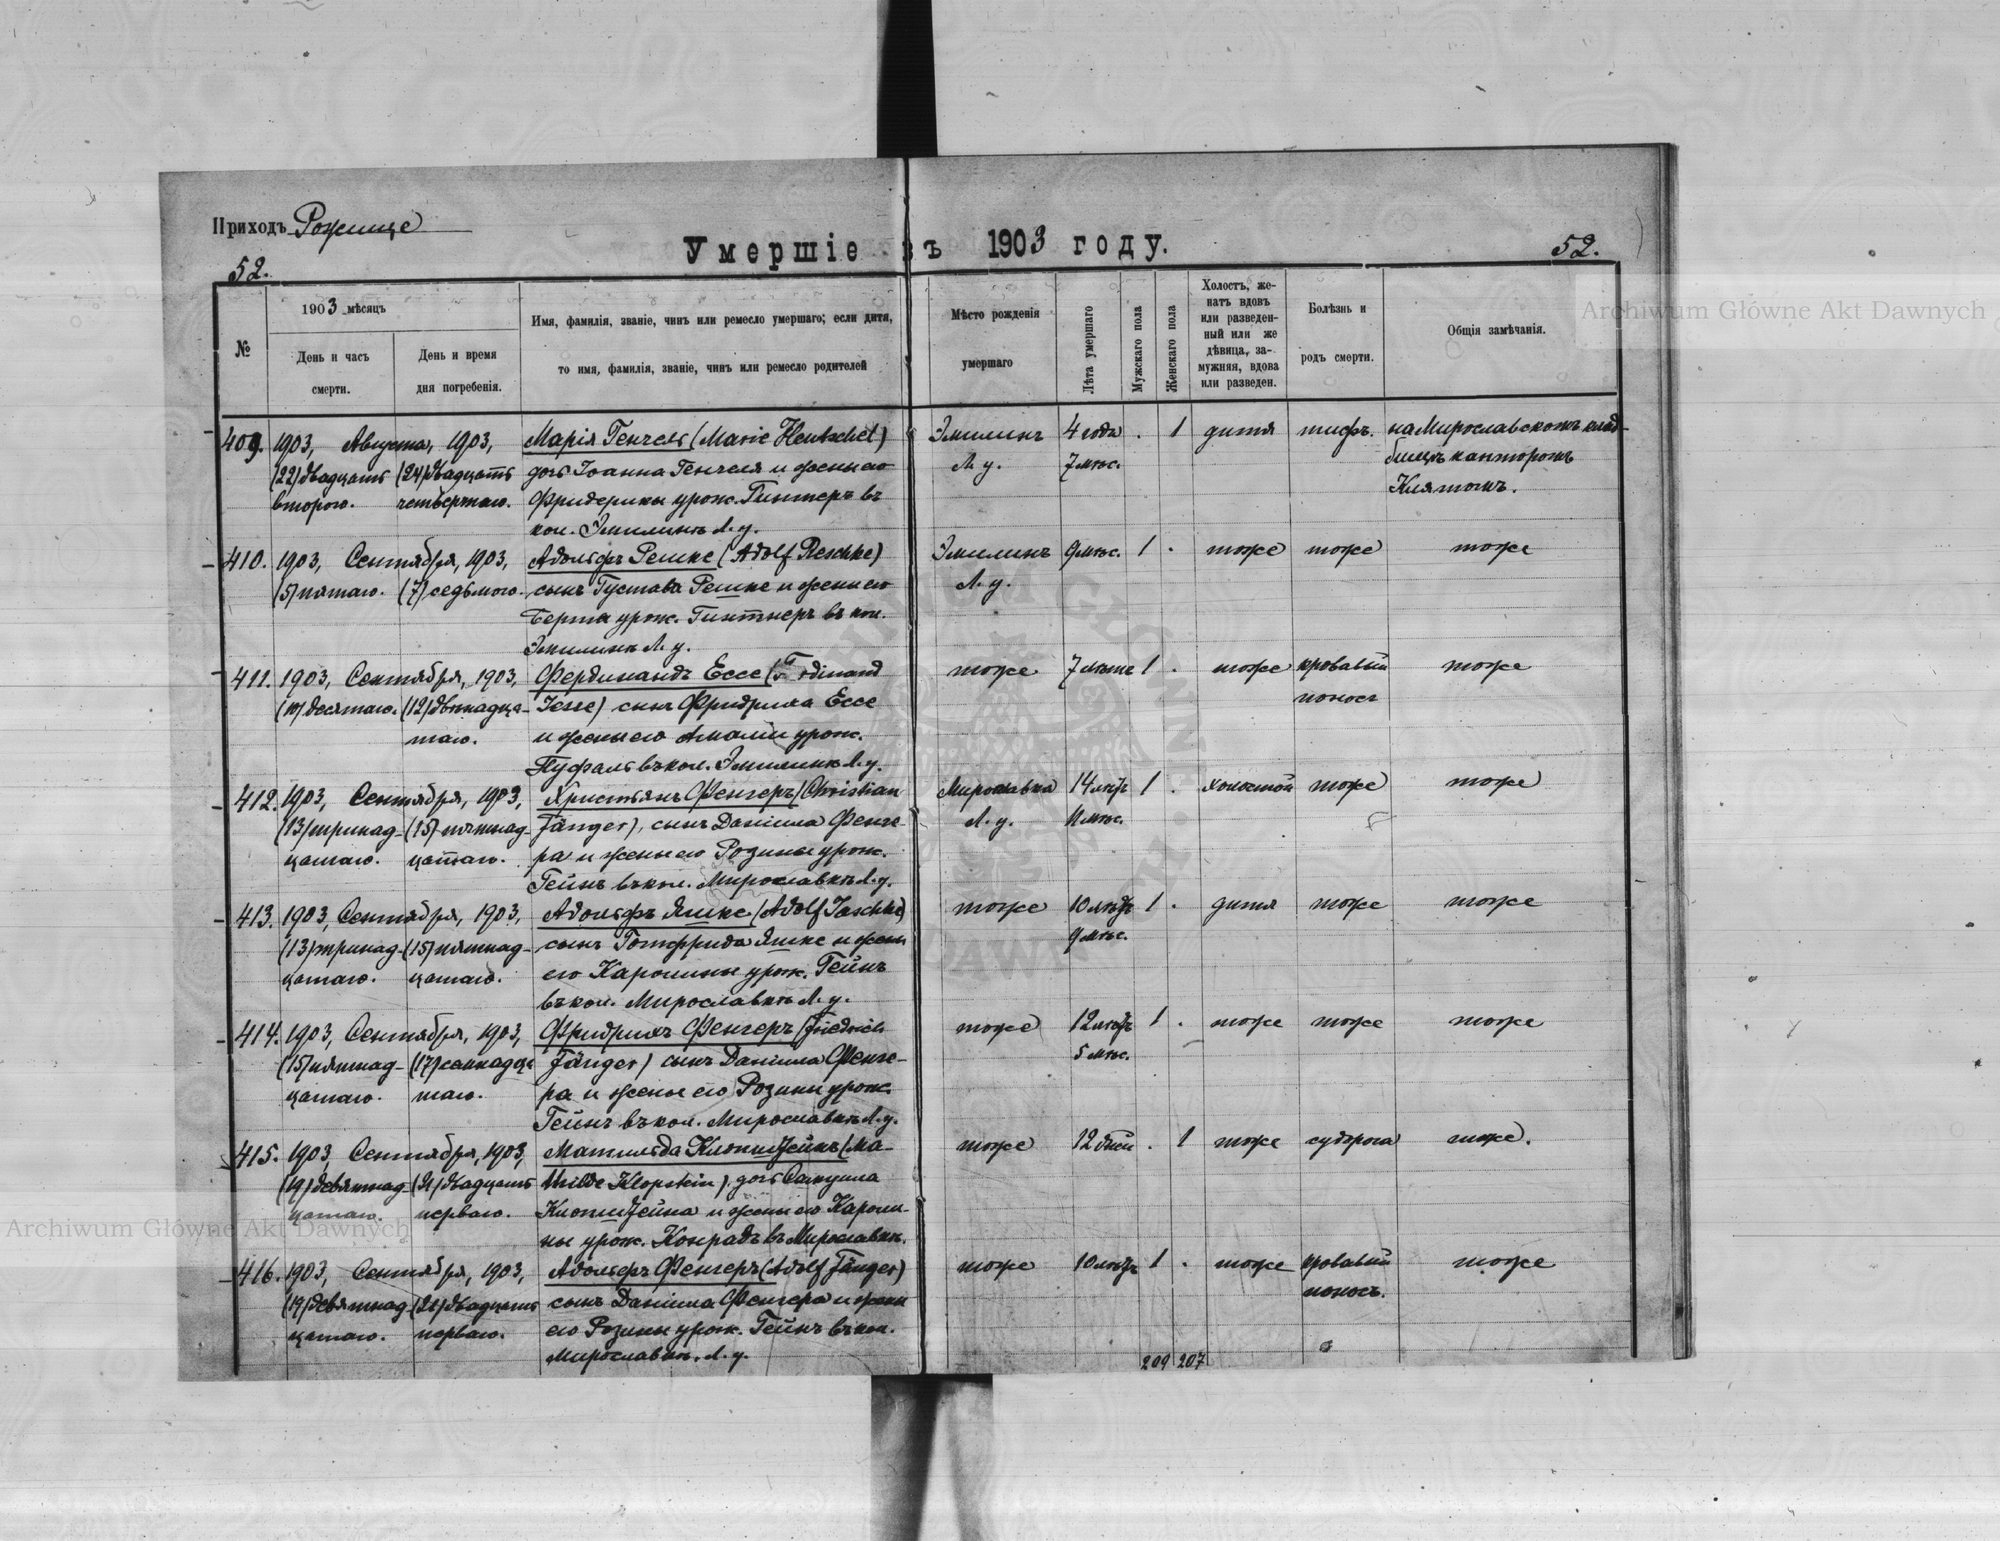 Приходъ Рожище
Умершіе въ 1903 году.
52.
52.
№
1903 мѣсяцъ
День и часъ
смерти.
День и время
дня погребенія.
Имя, фамилія, званіе, чинъ или ремесло умершаго; если дитя,
то имя, фамилія, званіе, чинъ или ремесло родителей
Мѣсто рожденія
умершаго
Лѣта умершаго
Мужскаго пола
Женскаго пола
Холостъ, же-
натъ вдовъ
или разведен-
ный или же
дѣвица, за-
мужняя, вдова
или разведен.
Болѣзнь и
родъ смерти.
Общія замѣчанія.
Archiwum Główne Akt Dawnych
409. 1903, Августа, 1903, Марія Генчель (Marie Hentschel) Эмилинъ 4 года . 1 дитя тифъ. на Мирославскомъ клад-
(22) двадцать (24) двадцать дочь Іоанна Генчеля и жены его Л. у. 7 мѣс. бищѣ канторомъ
второго. четвертаго. Фридерики урож. Гинтеръ въ Клятомъ.
кол. Эмилинъ Л. у.
410. 1903, Сентября, 1903, Адольфъ Решке (Adolf Reschke) Эмилинъ 9 мѣс. 1 . тоже тоже тоже
(5) пятаго. (7) седьмого. сынъ Густава Решке и жены его Л. у.
Берты урож. Гинтнеръ въ кол.
Эмилинъ Л. у.
411. 1903, Сентября, 1903, Фердинандъ Ессе (Ferdinand тоже 7 лѣтъ 1 . тоже кровавый тоже
(10) десятаго. (12) двѣнадца- Jesse) сынъ Фридриха Ессе поносъ
таго. и жены его Амаліи урож.
Пуфаль въ кол. Эмилинъ Л. у.
412. 1903, Сентября, 1903, Христьянъ Фенгеръ (Christian Мирославка 14 лѣтъ 1 . холостой тоже тоже
(13) тринад- (15) пятнад- Fänger), сынъ Даніила Фенге- Л. у. 11 мѣс.
цатаго. цатаго. ра и жены его Розины урож.
Гейнъ въ кол. Мирославкѣ Л. у.
413. 1903, Сентября, 1903, Адольфъ Яшке (Adolf Jaschke) тоже 10 лѣтъ 1 . дитя тоже тоже
(13) тринад- (15) пятнад- сынъ Готфрида Яшке и жены 9 мѣс.
цатаго. цатаго. его Каролины урож. Гейнъ
въ кол. Мирославкѣ Л. у.
414. 1903, Сентября, 1903, Фридрихъ Фенгеръ (Friedrich тоже 12 лѣтъ 1 . тоже тоже тоже
(15) пятнад- (17) семнадца Fänger) сынъ Даніила Фенге- 5 мѣс.
цатаго. таго. ра и жены его Розины урож.
Гейнъ въ кол. Мирославкѣ Л. у.
415. 1903, Сентября, 1903, Матильда Клопштейнъ (Ma- тоже 12 дней . 1 тоже судорога тоже.
(19) девятнад (21) двадцать thilde Klopstein), дочь Самуила
цатаго. перваго. Клопштейна и жены его Кароли-
ны урож. Конрадъ въ Мирославкѣ.
Archiwum Główne Akt Dawnych
416. 1903, Сентября, 1903, Адольфъ Фенгеръ (Adolf Fänger) тоже 10 лѣтъ 1 . тоже кровавый тоже
(19) девятнад (21) двадцать сынъ Даніила Фенгера и жены поносъ.
цатаго. перваго. его Розины урож. Гейнъ въ кол.
Мирославкѣ, Л. у.
209 207